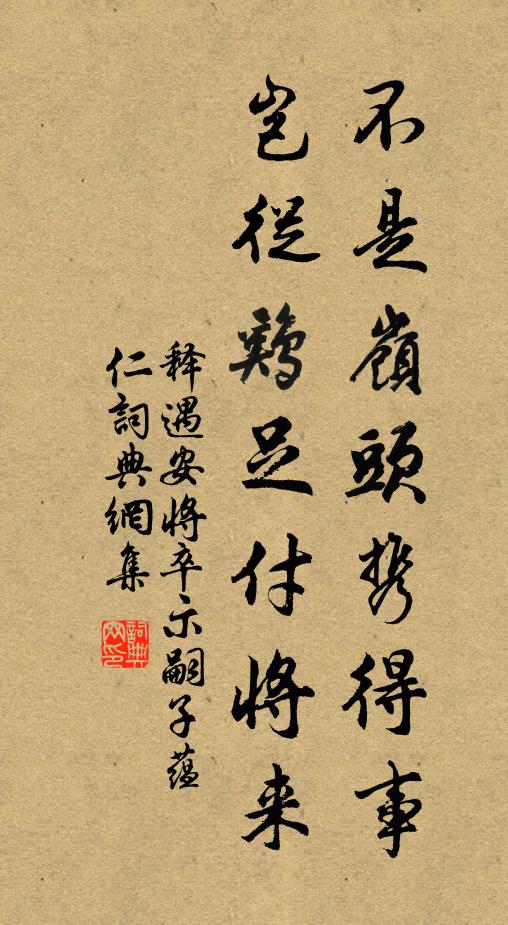 不是嶺頭携得事
豈從鷄足付將来
释遇安將卒示嗣子蕴
仁詞典網集
詞典
网印